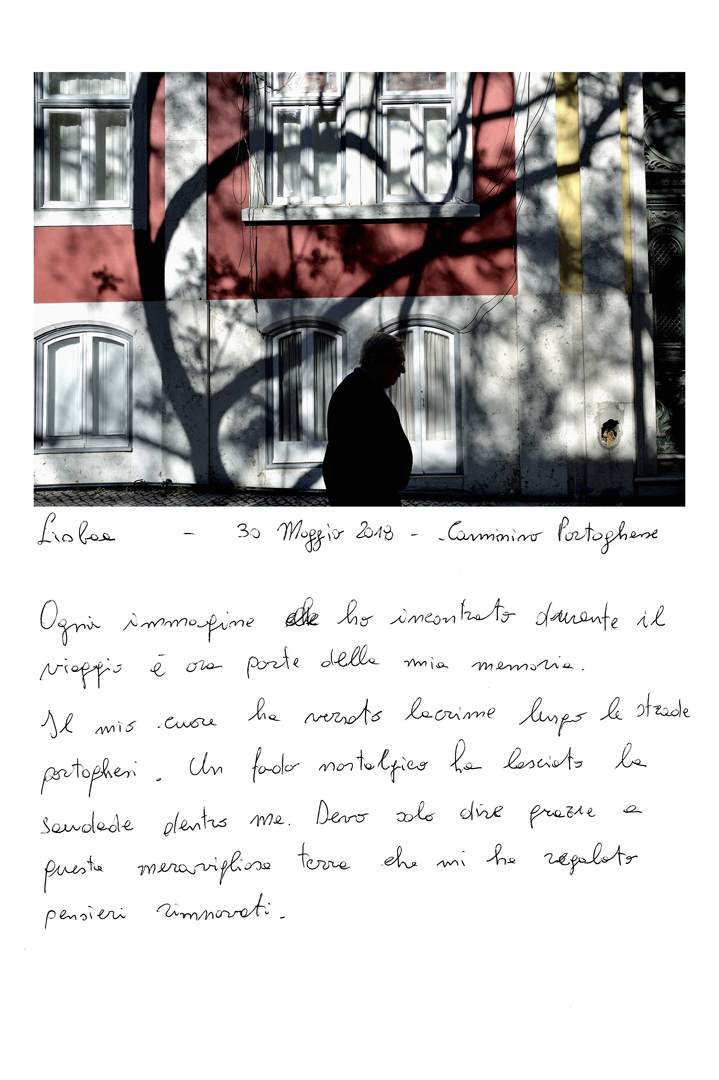 Lisboa - 30 Maggio 2018 - Cammino Portoghese
Ogni immagine che ho incontrato durante il
viaggio è ora parte della mia memoria.
Il mio cuore ha versato lacrime lungo le strade
portoghesi. Un fado nostalgico ha lasciato la
saudade dentro me. Devo solo dire grazie a
questa meravigliosa terra che mi ha regalato
pensieri rinnovati.